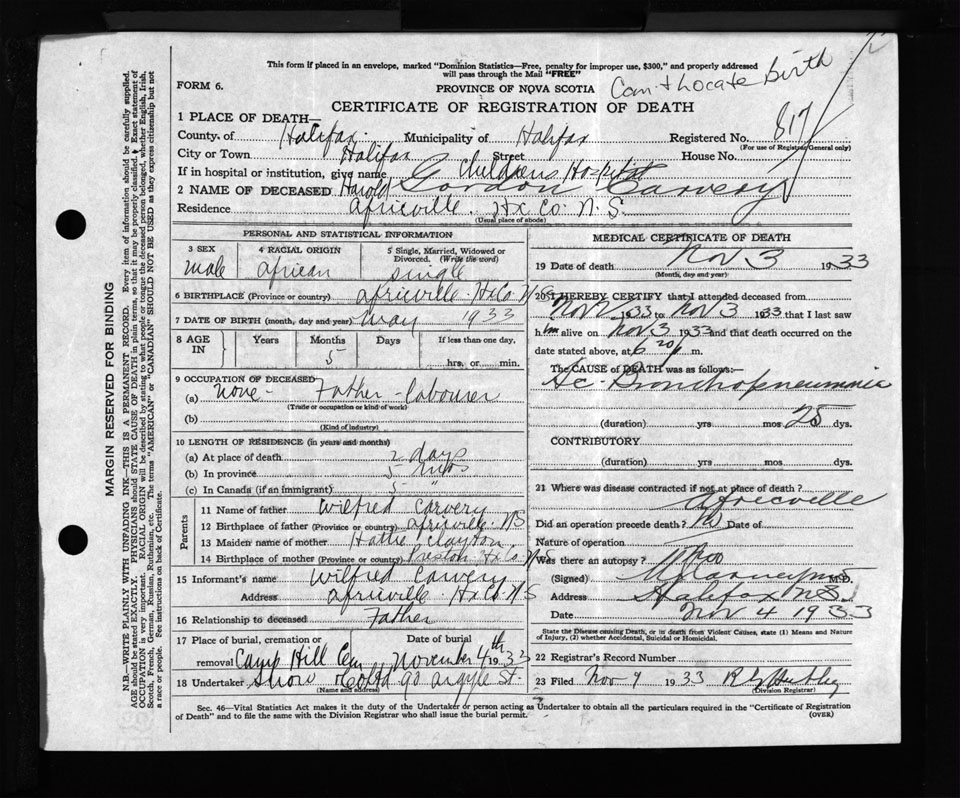 This form if placed in an envelope, marked "Dominion Statistics—Free, penalty for improper use, $300," and properly addressed
will pass through the Mail "FREE"
FORM 6.
PROVINCE OF NOVA SCOTIA
Can't Locate birth
CERTIFICATE OF REGISTRATION OF DEATH
1 PLACE OF DEATH—
County of Halifax Municipality of Halifax Registered No. 817
(For use of Registrar General only)
City or Town Halifax Street House No.
If in hospital or institution, give name Childrens Hospital
2 NAME OF DECEASED Harold Gordon Carvery
Residence Africville. Hx Co. N.S.
(Usual place of abode)
PERSONAL AND STATISTICAL INFORMATION
3 SEX 4 RACIAL ORIGIN 5 Single, Married, Widowed or
Divorced. (Write the word)
male african single
6 BIRTHPLACE (Province or country) africville. Hx Co. N-S
7 DATE OF BIRTH (month, day and year) May 1933
8 AGE IN Years Months Days If less than one day,
5 hrs. or min.
9 OCCUPATION OF DECEASED
(a) None - Father - labourer
(Trade or occupation or kind of work)
(b)
(Kind of industry)
10 LENGTH OF RESIDENCE (in years and months)
(a) At place of death 2 days
(b) In province 5 mos
(c) In Canada (if an immigrant) 5 "
Parents
11 Name of father Wilfred Carvery
12 Birthplace of father (Province or country) africville. NS
13 Maiden name of mother Hattie Clayton
14 Birthplace of mother (Province or country) Preston Hx Co. N-S
15 Informant's name Wilfred Carvery
Address africville Hx Co. N S
16 Relationship to deceased Father
17 Place of burial, cremation or Date of burial
removal Camp Hill Cem November 4th 1933
18 Undertaker Snow & Co Ltd 90 argyle St.
(Name and address)
MEDICAL CERTIFICATE OF DEATH
19 Date of death Nov 3 1933
(Month, day and year)
20 I HEREBY CERTIFY that I attended deceased from
Nov 2 1933 to Nov 3 1933 that I last saw
him alive on Nov 3 1933 and that death occurred on
date stated above, at 6 20 p m.
The CAUSE of DEATH was as follows:—
Ac. Bronchopneumonia
(duration) yrs mos 25 dys.
CONTRIBUTORY
(duration) yrs. mos. dys.
21 Where was disease contracted if not at place of death? Africville
Did an operation precede death? No Date of
Nature of operation
Was there an autopsy? No
(Signed) M.D.
Address Halifax N.S.
Date Nov 4 1933
State the Disease causing Death, or in death from Violent Causes, state (1) Means and Nature
of Injury, (2) whether Accidental, Suicidal or Homicidal.
22 Registrar's Record Number
23 Filed Nov 9 1933
(Division Registrar)
Sec. 46—Vital Statistics Act makes it the duty of the Undertaker or person acting as Undertaker to obtain all the particulars required in the "Certificate of Registration
of Death" and to file the same with the Division Registrar who shall issue the burial permit.
(OVER)
MARGIN RESERVED FOR BINDING
N.B.—WRITE PLAINLY WITH UNFADING INK—THIS IS A PERMANENT RECORD. Every item of information should be carefully supplied.
AGE should be stated EXACTLY. PHYSICIANS should STATE CAUSE OF DEATH in plain terms, so that it may be properly classified. Exact statement of
OCCUPATION is very important. RACIAL ORIGIN will be described by stating to what people or tongue the deceased person belonged, whether English, Irish,
Scotch, French, German, Russian, Ruthenian, etc. The terms "AMERICAN" or "CANADIAN" SHOULD NOT BE USED as they express citizenship but not
a race or people. See instructions on back of Certificate.